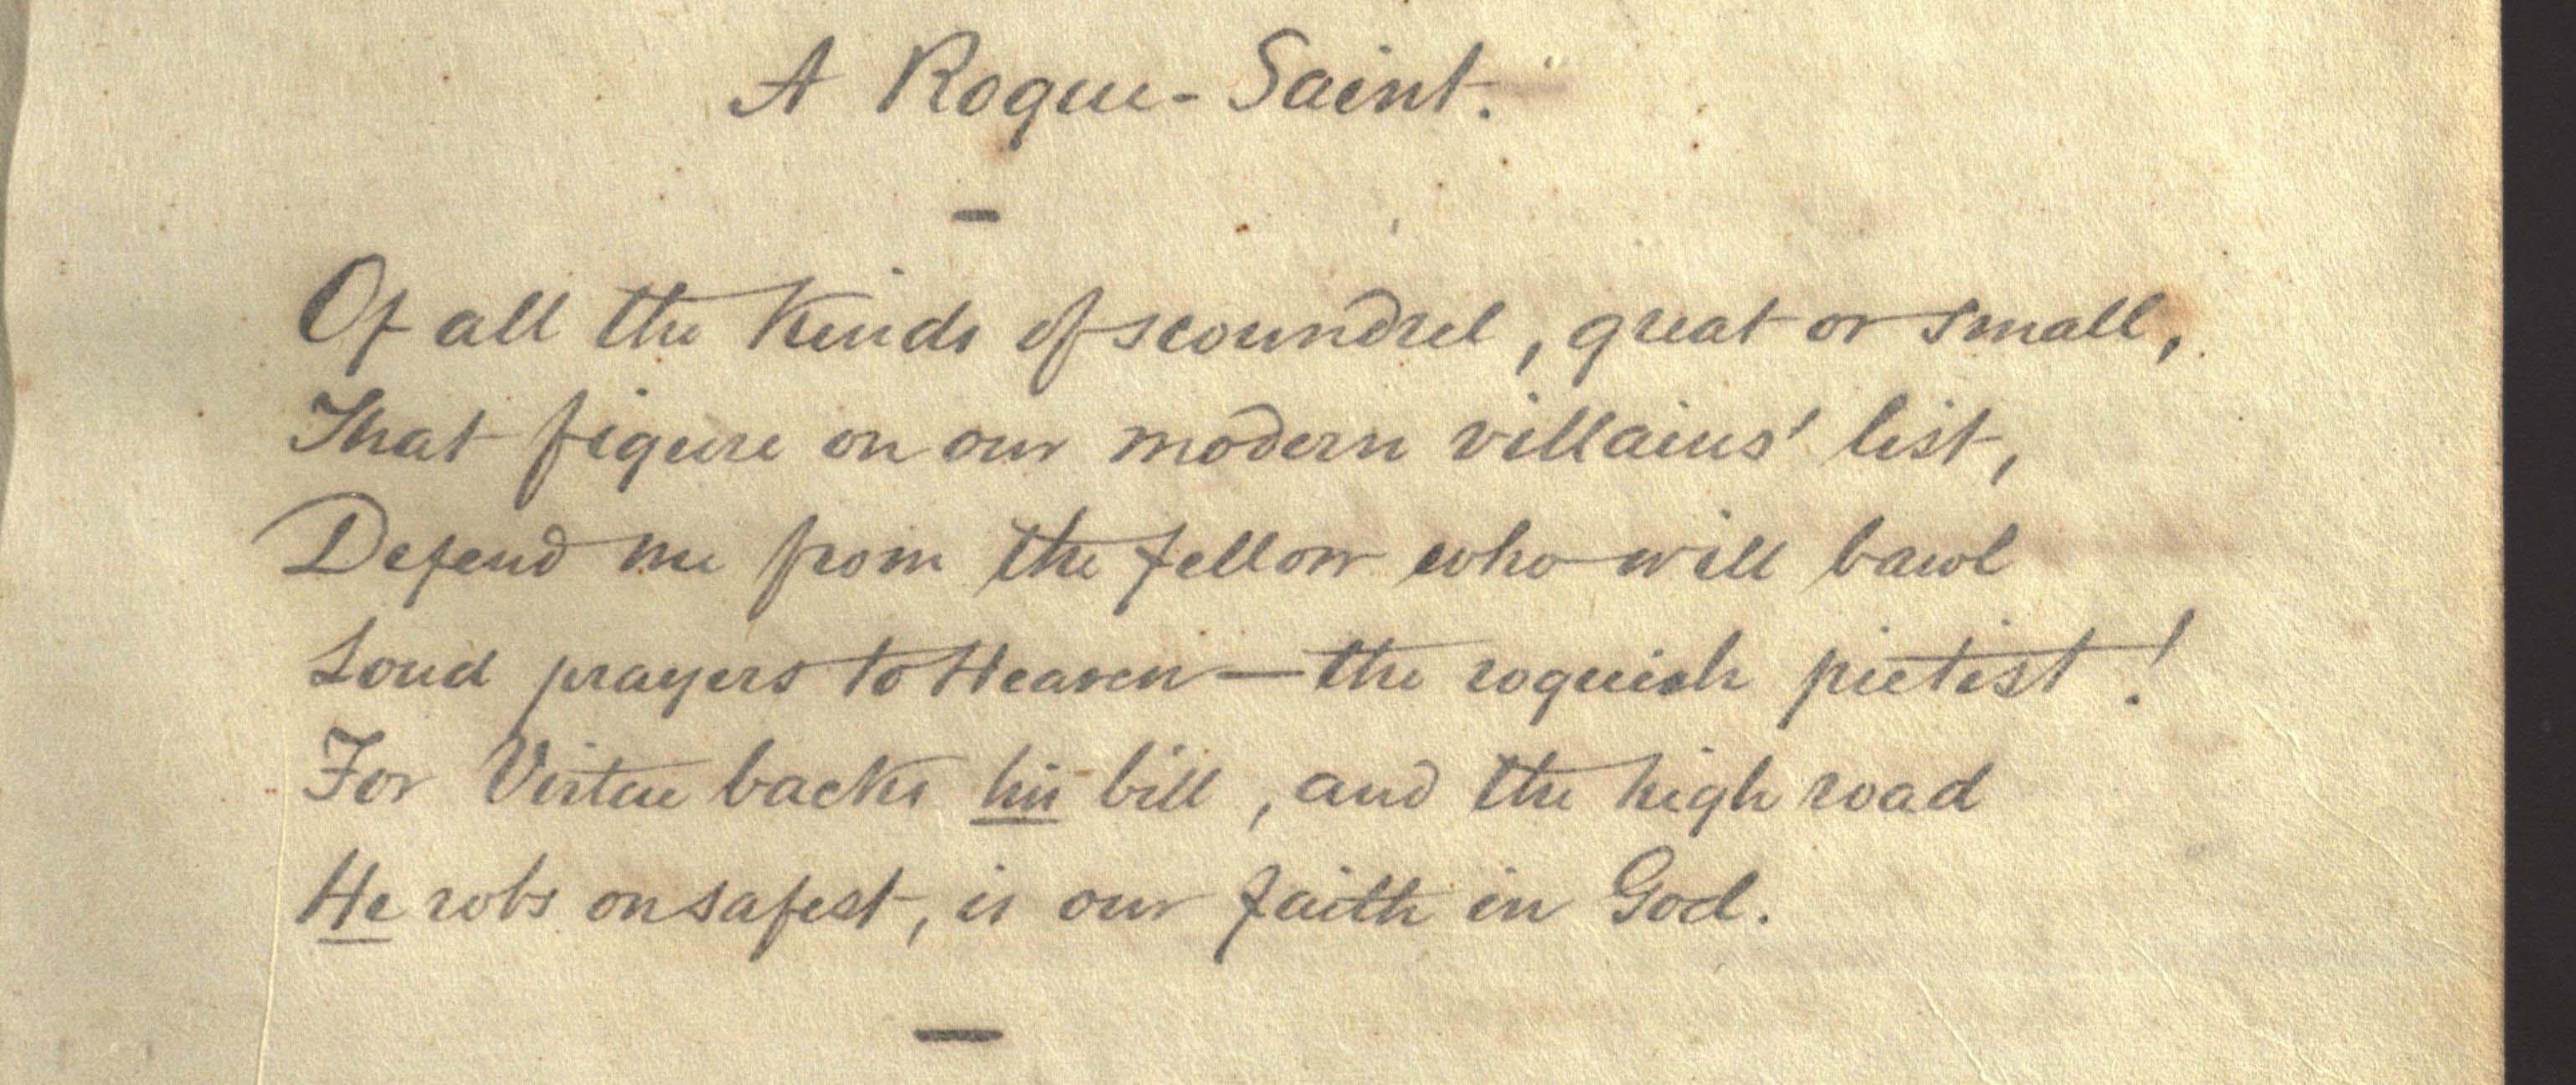 A Rogue-Saint.
Of all the kinds of scoundrel, great or small,
That figure on our modern villains' list,
Defend me from the fellow who will bawl
Loud prayers to Heaven—the roguish pietist!
For Virtue backs his bill, and the high road
He robs on safest, is our faith in God.